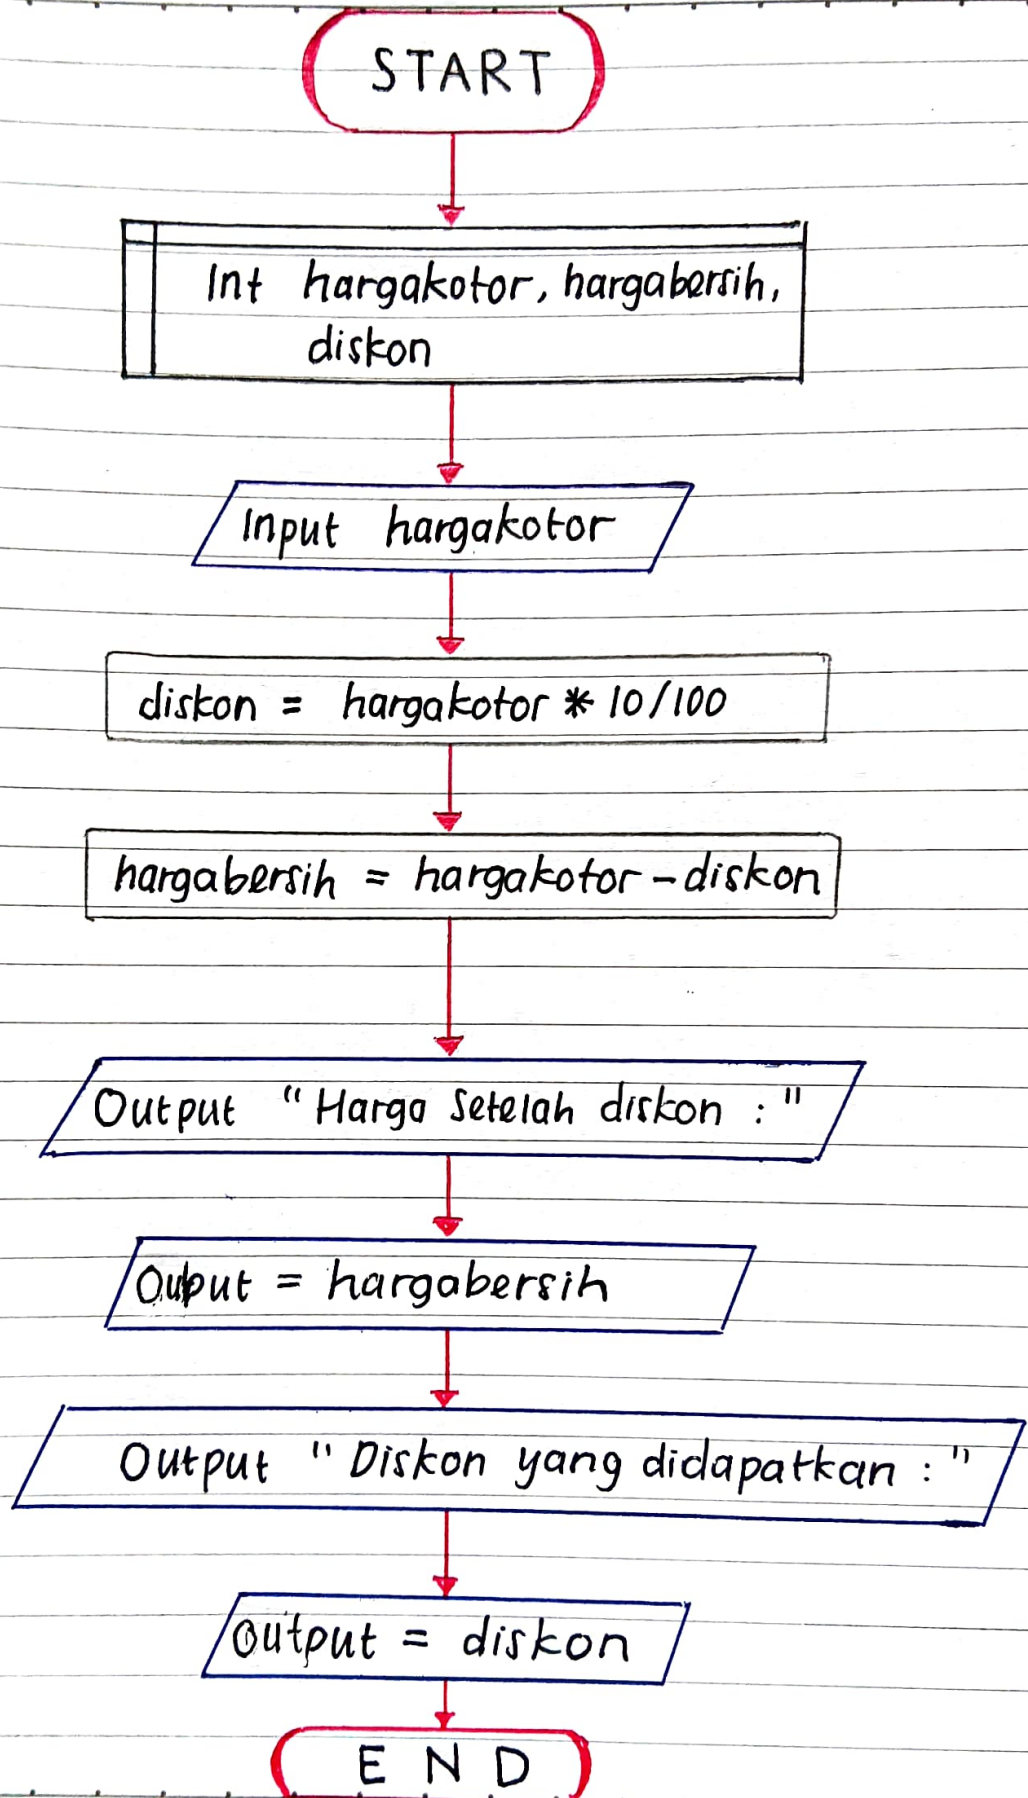 START
Int hargakotor, hargabersih,
diskon
Input hargakotor
diskon = hargakotor * 10/100
hargabersih = hargakotor - diskon
Output "Harga Setelah diskon : "
Output = hargabersih
Output " Diskon yang didapatkan : "
Output = diskon
END